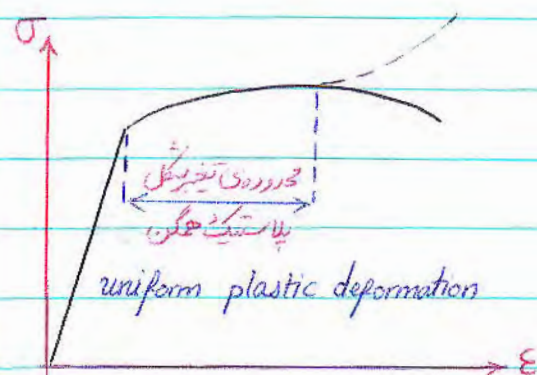 σ
محدوده‌ی تغییر شکل
پلاستیک همگن
uniform plastic deformation
ε